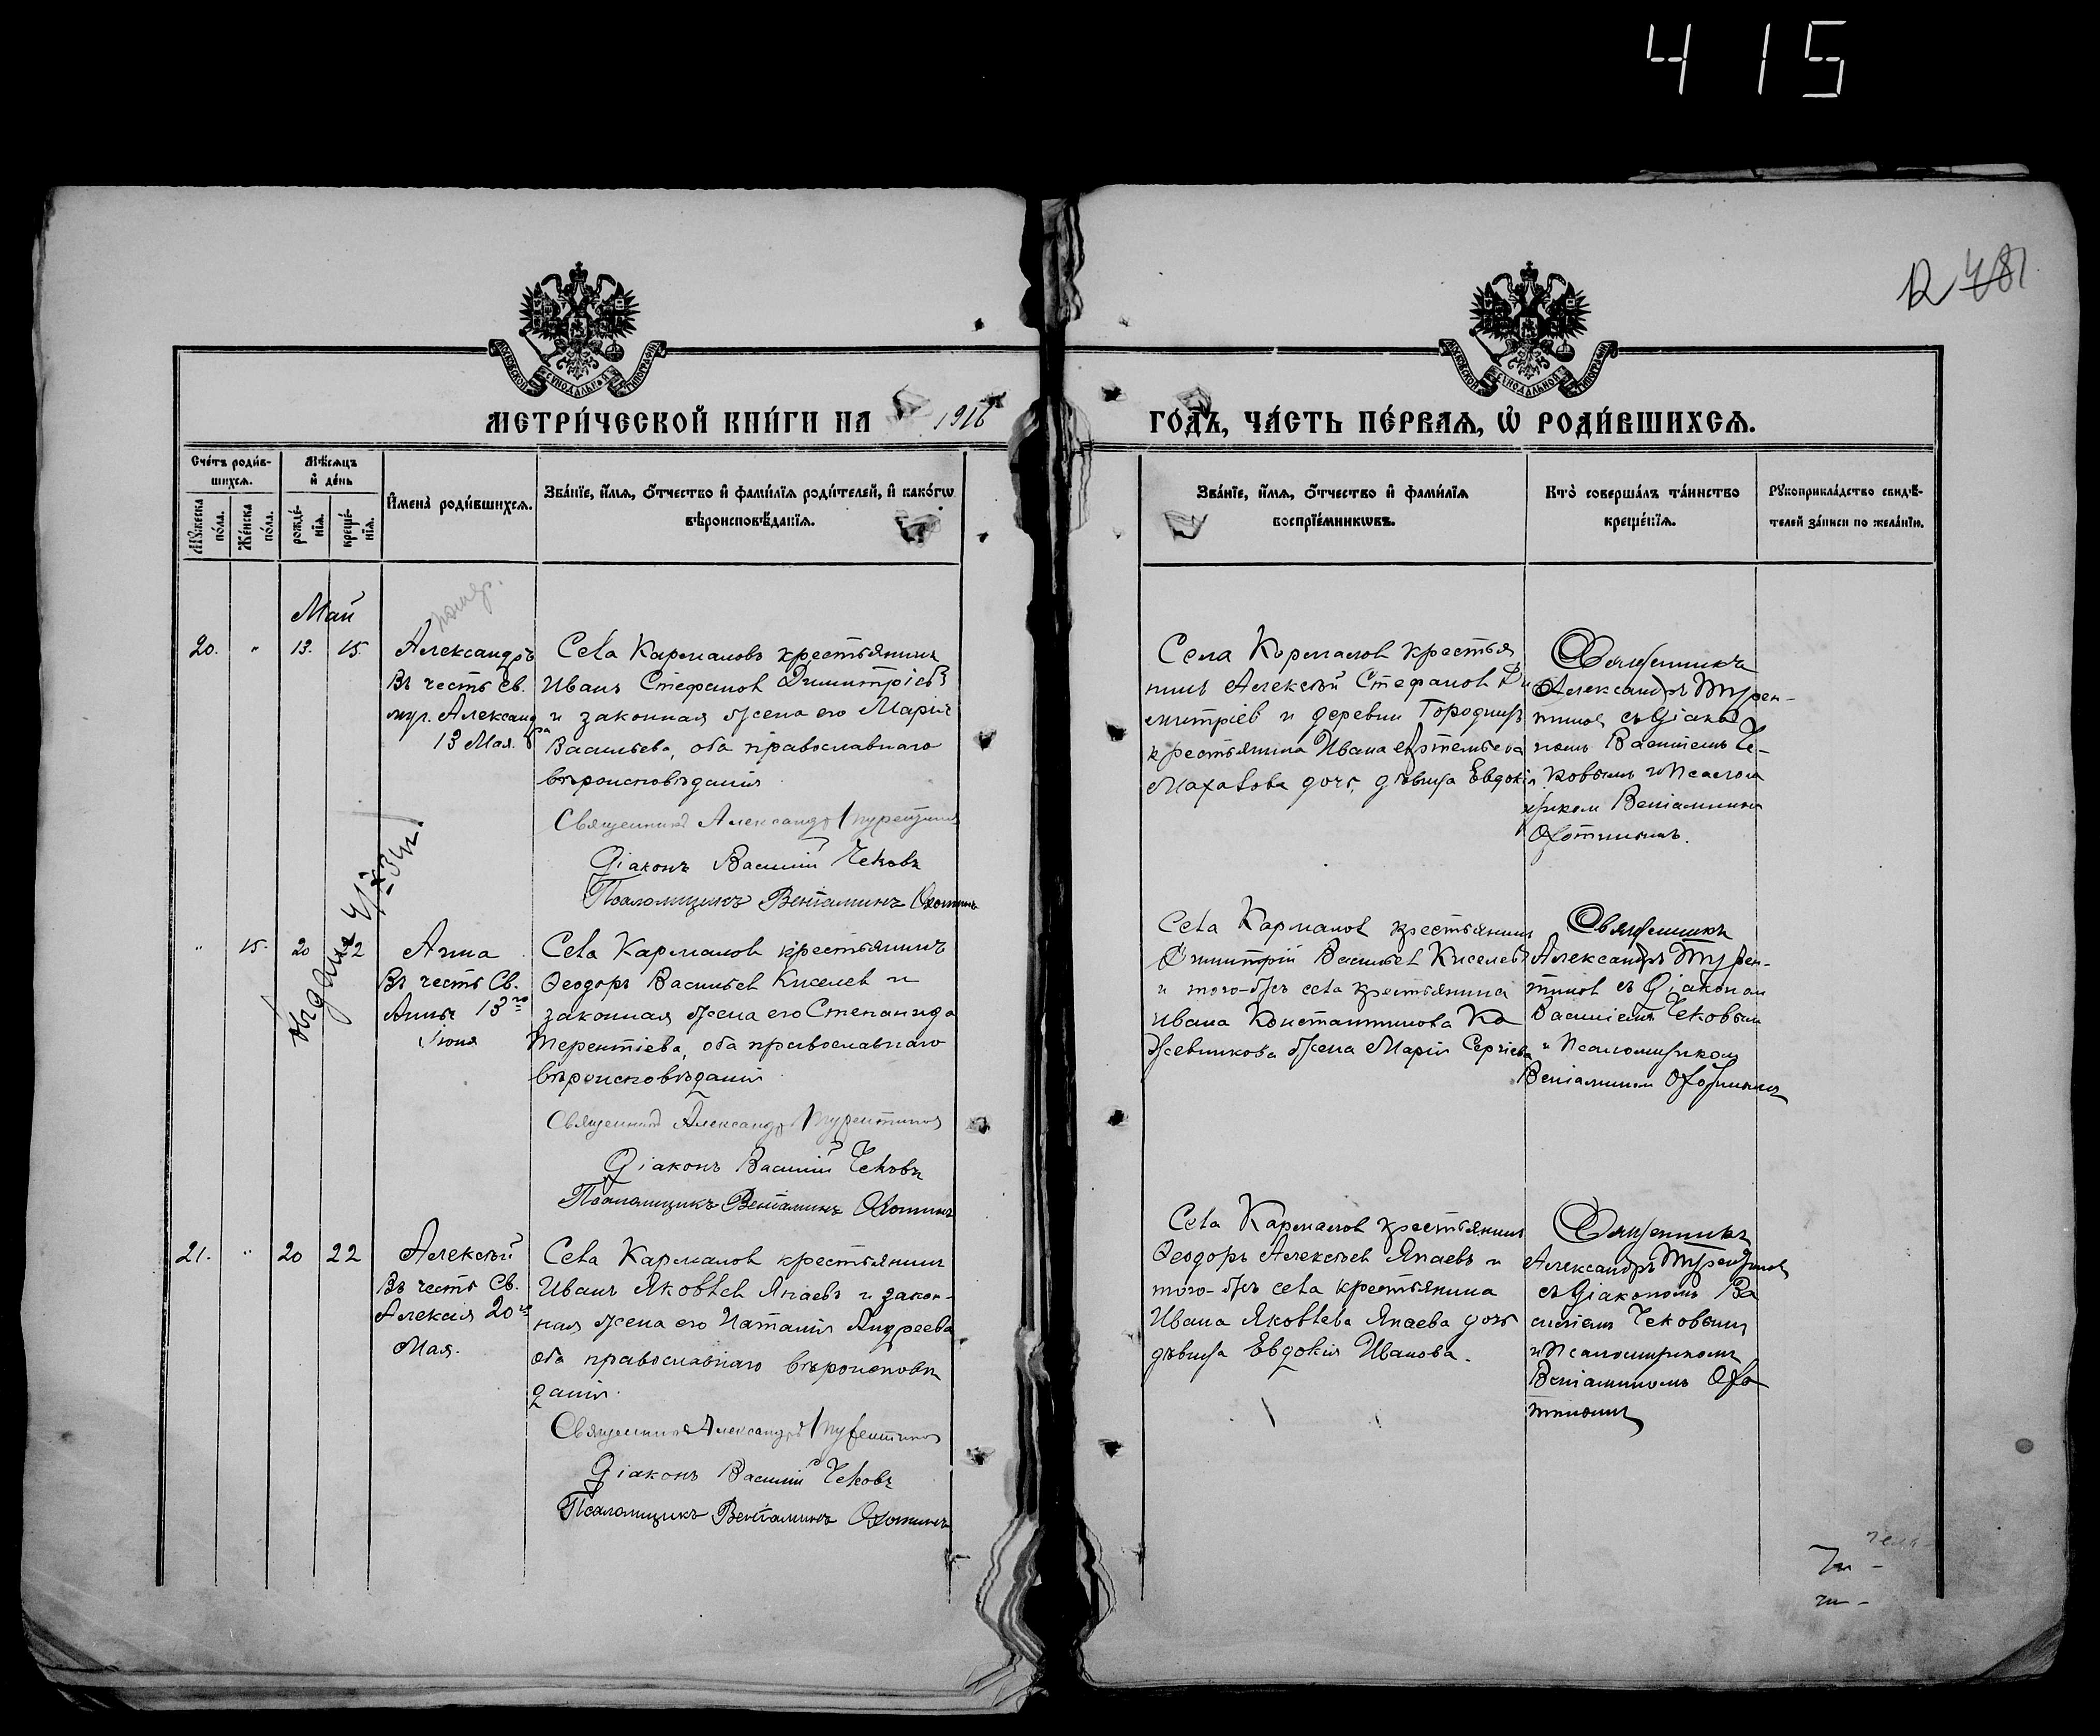 415
481
МОСКОВСКОЙ СѴНОДАЛЬНОЙ ТИПОГРАФІИ
МОСКОВСКОЙ СѴНОДАЛЬНОЙ ТИПОГРАФІИ
МЕТРИ́ЧЕСКОЙ КНИ́ГИ НА 1916
ГО́ДЪ, ЧА́СТЬ ПЕ́РВАѦ, Ѽ РОДИ́ВШИХСѦ.
Сче́тъ роди́в-
шихсѧ.
Мꙋ́жеска
по́ла.
Же́нска
по́ла.
Мѣ́сѧцъ
и҆ де́нь
рожде́-
нїѧ.
креще́-
нїѧ.
И҆мена̀ роди́вшихсѧ.
Зва́нїе, и҆́мѧ, ѻ҆́тчество и҆ фами́лїѧ роди́телей, и҆ како́гѡ
вѣроисповѣ́данїѧ.
Зва́нїе, и҆́мѧ, ѻ҆́тчество и҆ фами́лїѧ
воспрїе́мникѡвъ.
Кто̀ соверша́лъ та́инство
креще́нїѧ.
Рꙋкоприкла́дство свидѣ́-
телей за́писи по жела́нїю.
Май
20. " 13. 15.
Александръ
Въ честь св.
муч. Александ
ра
13 Мая.
Села Кармаловъ крестьянинъ
Иванъ Стефановъ Димитріевъ
и законная жена его Марія
Васильева, оба православнаго
вѣроисповѣданія.
Священникъ Александръ Турентиновъ
Діаконъ Василій Чековъ
Псаломщикъ Веніаминъ Охотинъ
Села Кармаловъ крестья
нинъ Алексѣй Стефановъ Ди
митріев и деревни Городищъ
крестьянина Ивана Артемьева
дочь, дѣвица Евдокія
Священникъ
Александръ Турен-
тиновъ съ Діако
номъ Василіемъ Че-
ковымъ и Псалом
щиком Веніаминомъ
Охотинымъ.
" 15. 20 22
Анна
Въ честь Св.
Анны 13го
Іюня
Села Кармаловъ крестьянинъ
Ѳеодоръ Васильевъ Киселевъ и
законная жена его Степанида
Терентіева, оба православнаго
вѣроисповѣданія.
Священникъ Александръ Турентиновъ
Діаконъ Василій Чековъ
Псаломщикъ Веніаминъ Охотинъ
Села Кармаловъ крестьянинъ
Димитрій Васильевъ Киселевъ
и того-же села крестьянина
Ивана Константинова Ко
жевникова жена Марія Сергіева
Священникъ
Александръ Турен-
тиновъ съ Діакономъ
Василіемъ Чековымъ
и Псаломщикомъ
Веніаминомъ Охотинымъ
21. " 20 22
Алексѣй
Въ честь Св.
Алексія 20го
Мая.
Села Кармаловъ крестьянинъ
Иванъ Яковлевъ Япаевъ и закон-
ная жена его Наталія Андреева
оба православнаго вѣроисповѣ
данія.
Священникъ Александръ Турентиновъ
Діаконъ Василій Чековъ
Псаломщикъ Веніаминъ Охотинъ
Села Кармаловъ крестьянинъ
Ѳеодоръ Алексѣевъ Япаевъ и
того-же села крестьянина
Ивана Яковлева Япаева дочь
дѣвица Евдокія Иванова.
Священникъ
Александръ Турентиновъ
съ Діакономъ Ва
силіемъ Чековымъ
и Псаломщикомъ
Веніаминомъ Охо
тинымъ